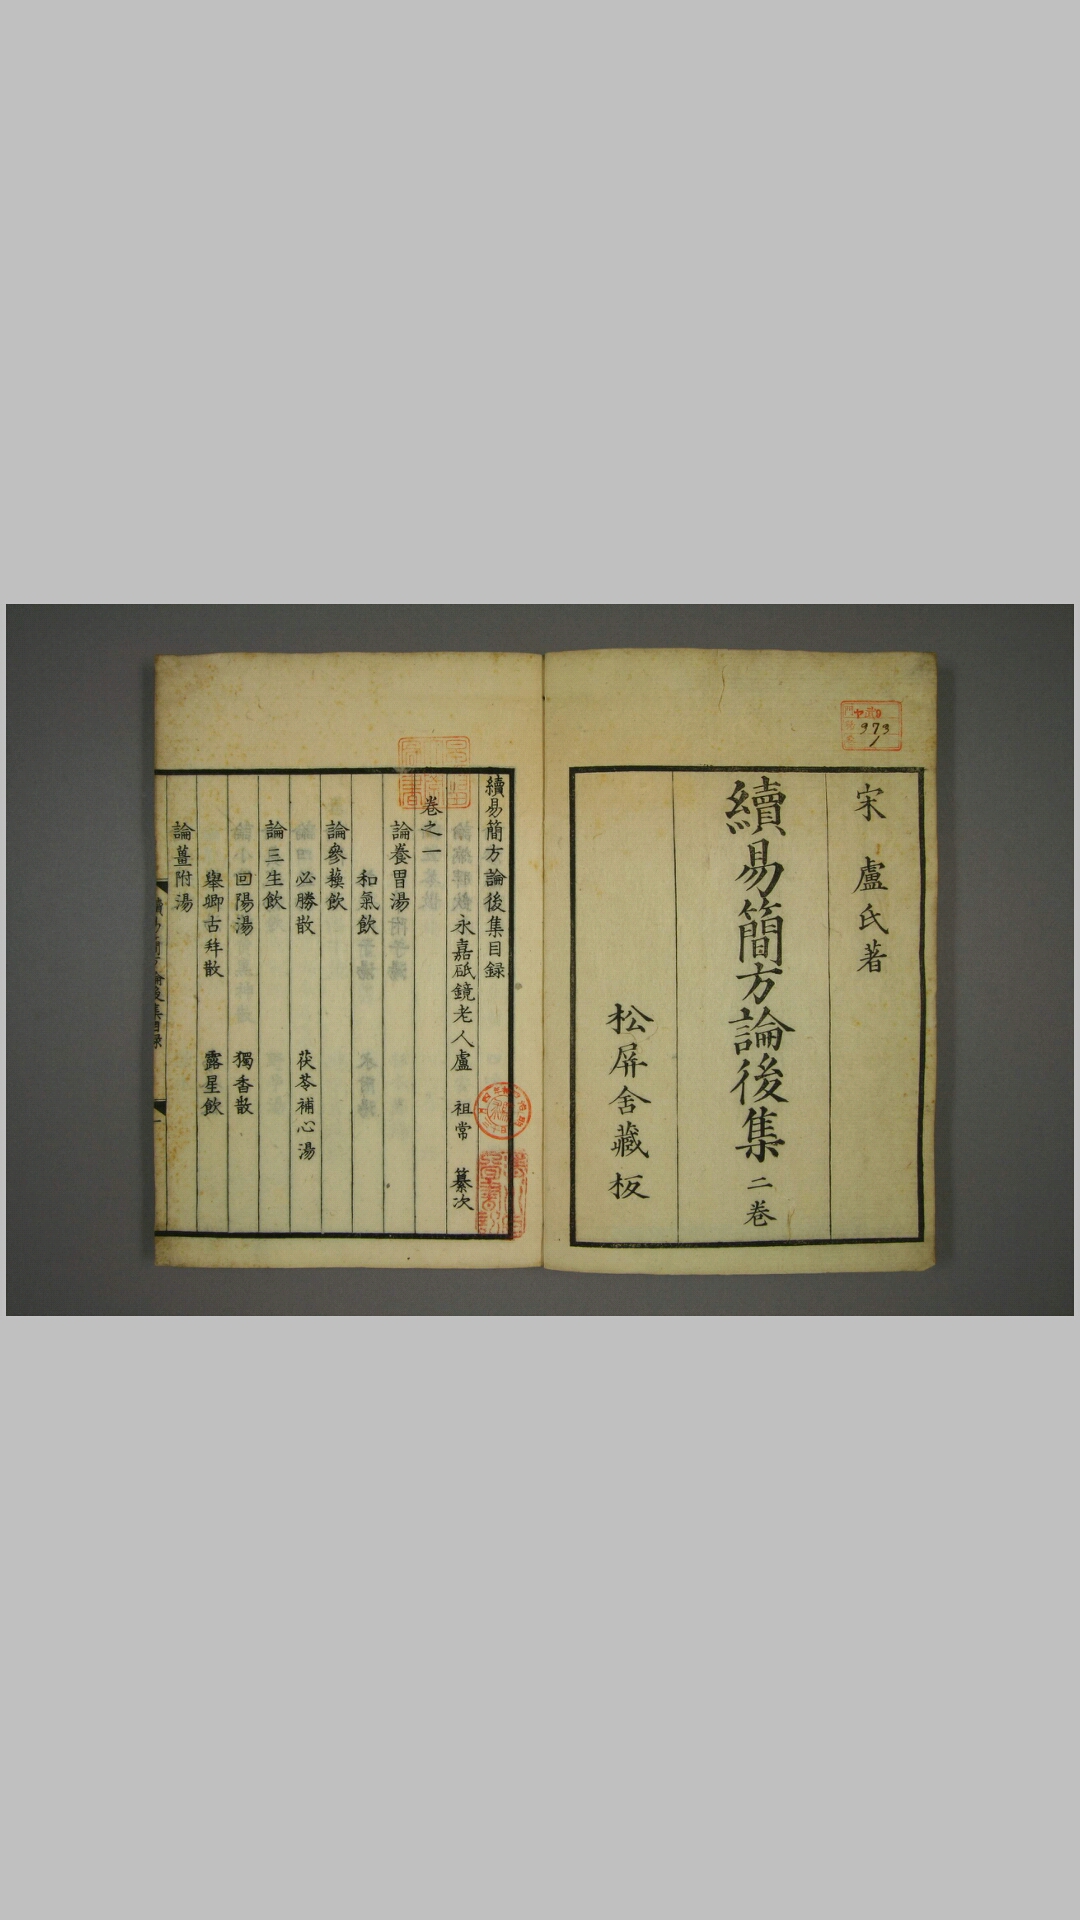 宋 盧氏著
續易簡方論後集二卷
松屏舍藏板
973
1
續易簡方論後集目録
永嘉砥鏡老人盧 祖常 纂次
卷之一
論養胃湯
和氣飲
論參蘓飲
必勝散 茯苓補心湯
論三生飲
回陽湯 獨香散
舉卿古拜散 露星飲
論薑附湯